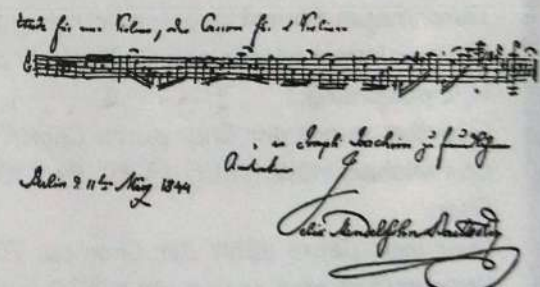 Etude für eine Violine, oder Canon für 2 Violinen
Joseph Joachim zu freundlichem
Andenken
Berlin d. 11ten März 1844
Felix Mendelssohn Bartholdy